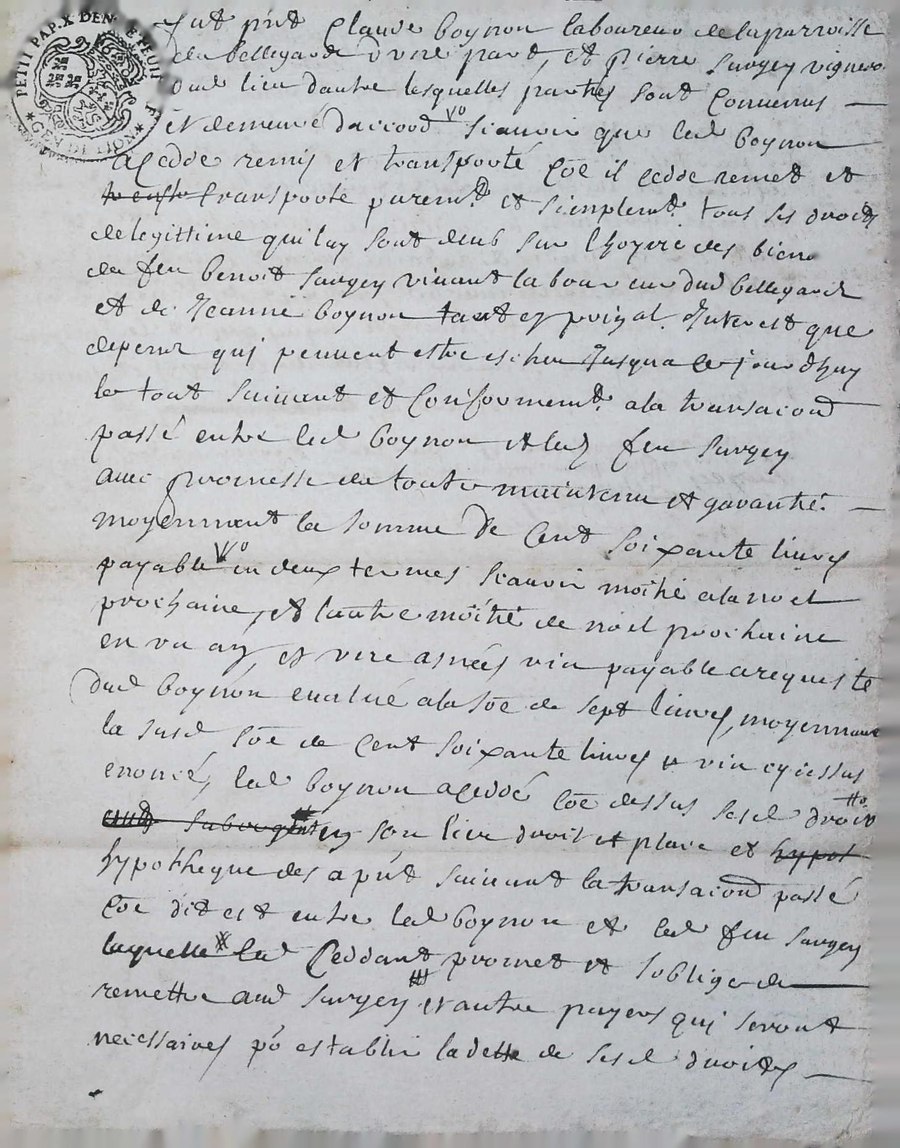 fut p'nt Claude boynon laboureur de la parroisse
de bellegarde d'une part, et pierre Surgey vigneron
dud lieu d'autre lesquelles parties sont Convenus
et demeuré d'accord Vo scauoir que led boynon
a Cedde remis et transporté Cõe il Cedde remet et
transporte purem.t et simplem.t tous ses droits
de legittime qui luy sont deub sur l'hoyrie des biens
de feu benoit Surgey viuant laboureur dud bellegarde
et de Jeanne boynon tant en prinpal. Interest que
depens qui peuuent estre escheu Jusqua ce jourdhuy
le tout suiuant et Conformem.t a la transaction
passé entre led boynon et led feu Surgey
auec promesse de toute maintenue et garantie.
moyennant la somme de Cent soixante liures
payable Vo en deux termes scauoir moitié a la noel
prochaine, et lautre moitié de noel prochaine
en un an, et une asnées vin payable a requeste
dud boynon eualué a la sõe de sept liures, moyennant
la susd sõe de Cent soixante liures et vin cy dessus
enoncé, led boynon a Ceddé Cõe dessus sesd droits
son lieu droit et place et hypot
hypotheque des a p'nt suiuant la transaction passé
Cõe dit est entre led boynon et led feu Surgey
laquelle led Ceddant promet et soblige de
remettre aud Surgey et autre payers qui seront
necessaires po establir la dette de sesd droits
PETIT PAP. X DEN.